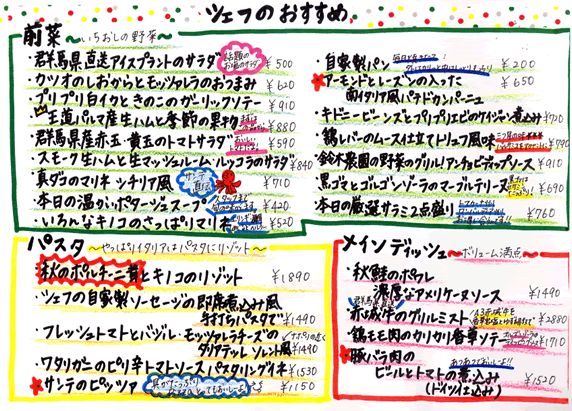 シェフのおすすめ
前菜 〜いちおしの野菜〜
・群馬県直送アイスプラントのサラダ ¥500
・カツオのしおからとモッツァレラのおつまみ ¥620
・プリプリ白イカときのこのガーリックソテー ¥910
・王道パルマ産生ハムと季節の果物 ¥880
・群馬県産赤玉・黄玉のトマトサラダ ¥590
・スモーク生ハムと生マッシュルーム・ルッコラのサラダ ¥840
・真ダコのマリネ シチリア風 ¥710
・本日の温かいポタージュスープ ¥420
・いろんなキノコのさっぱりマリネ ¥520
・自家製パン ¥200
アーモンドとレーズンの入った ¥650
南イタリア風パテドカンパーニュ
・キドニービーンズとプリプリエビのケイジャン煮込み ¥720
・鶏レバーのムース仕立てトリュフ風味 ¥790
・鈴木農園の野菜のグリル!アンチョビディップソース ¥910
・黒ゴマとゴルゴンゾーラのマーブルテリーヌ ¥690
・本日の厳選サラミ2点盛り ¥760
パスタ 〜やっぱりイタリアはパスタにリゾット〜
・秋のポルチーニ茸とキノコのリゾット ¥1890
・シェフの自家製ソーセージの即席煮込み風
手打ちパスタで ¥1490
・フレッシュトマトとバジル・モッツァレラチーズの
タリアテッレ ソレント風 ¥1490
・ワタリガニのピリ辛トマトソースパスタリングイネ ¥1530
サンテのピッツァ ¥1150
メインディッシュ 〜ボリューム満点〜
・秋鮭のポワレ
濃厚なアメリケーヌソース ¥1490
群馬県産
・赤城牛のグリルミスト ¥2880
・鶏モモ肉のカリカリ香草ソテー ¥1710
・豚バラ肉の
ビールとトマトの煮込み
(ドイツ仕込み) ¥1520